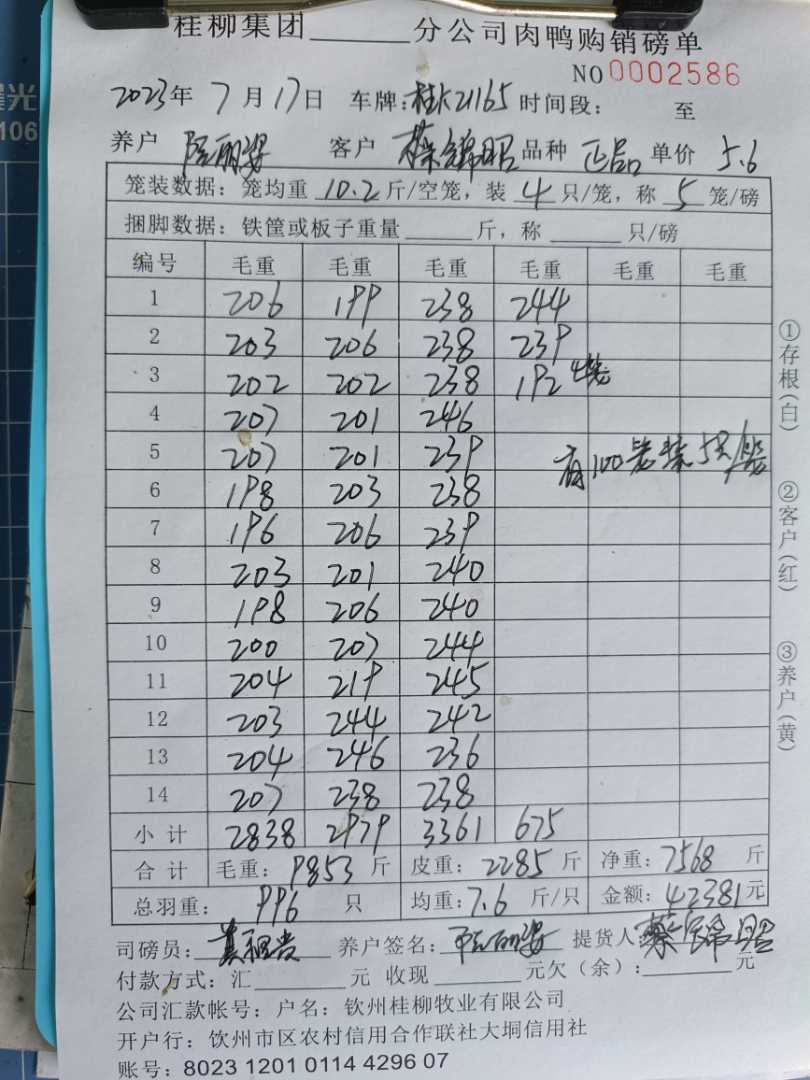 光
106
桂柳集团______分公司肉鸭购销磅单
NO 0002586
2023年 7月17日 车牌:桂K21165 时间段: 至
养户 陈丽姿 客户 蔡锦昭 品种 正品 单价 5.6
笼装数据: 笼均重 10.2 斤/空笼, 装 4 只/笼, 称 5 笼/磅
捆脚数据: 铁筐或板子重量______斤, 称______只/磅
编号 毛重 毛重 毛重 毛重 毛重 毛重
1 206 199 238 244
2 203 206 238 239
3 202 202 238 192 4笼
4 207 201 246
5 207 201 239 有100笼装5只/笼
6 198 203 238
7 196 206 239
8 203 201 240
9 198 206 240
10 200 207 244
11 204 219 245
12 203 244 242
13 204 246 236
14 207 238 238
小计 2838 2979 3361 675
合计 毛重: 9853 斤 皮重: 2285 斤 净重: 7568 斤
总羽重: 996 只 均重: 7.6 斤/只 金额: 42381 元
司磅员: 养户签名: 陈丽姿 提货人 蔡锦昭
付款方式: 汇______元 收现______元欠(余):______元
公司汇款帐号: 户名: 钦州桂柳牧业有限公司
开户行: 饮州市区农村信用合作联社大垌信用社
账号: 8023 1201 0114 4296 07
①存根(白)
②客户(红)
③养户(黄)